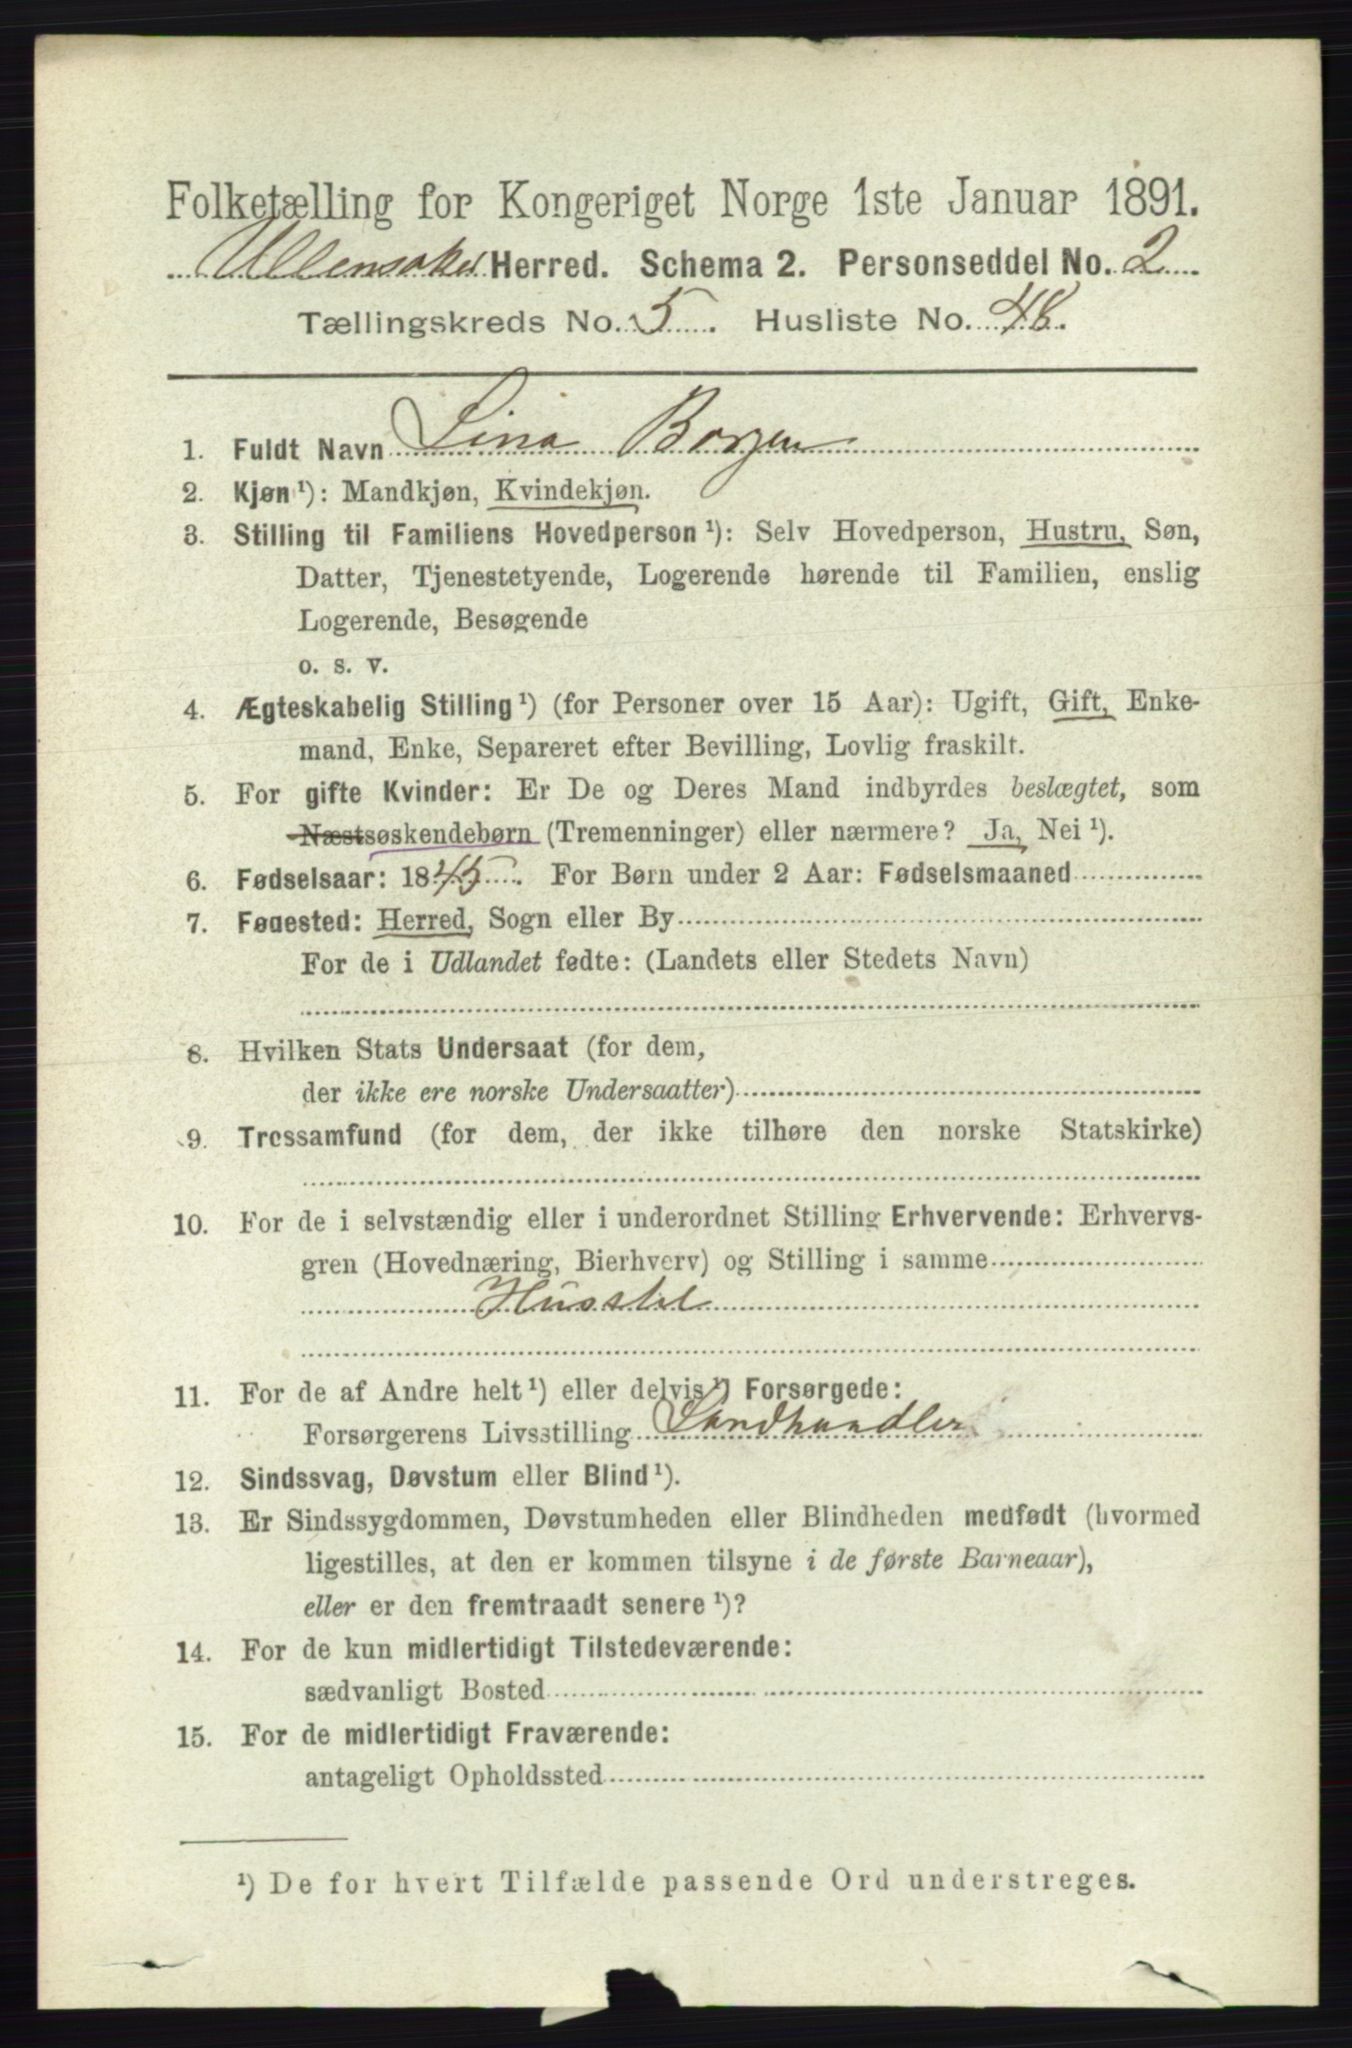 Folketælling for Kongeriget Norge 1ste Januar 1891.
Ullensaker Herred. Schema 2. Personseddel No. 2
Tællingskreds No. 5. Husliste No. 48.
1. Fuldt Navn Lina Borgen
2. Kjøn ¹): Mandkjøn, Kvindekjøn.
3. Stilling til Familiens Hovedperson ¹): Selv Hovedperson, Hustru, Søn,
Datter, Tjenestetyende, Logerende hørende til Familien, enslig
Logerende, Besøgende
o. s. v.
4. Ægteskabelig Stilling ¹) (for Personer over 15 Aar): Ugift, Gift, Enke-
mand, Enke, Separeret efter Bevilling, Lovlig fraskilt.
5. For gifte Kvinder: Er De og Deres Mand indbyrdes beslægtet, som
Næstsøskendebørn (Tremenninger) eller nærmere? Ja, Nei ¹).
6. Fødselsaar: 1845. For Børn under 2 Aar: Fødselsmaaned
7. Fødested: Herred, Sogn eller By
For de i Udlandet fødte: (Landets eller Stedets Navn)
8. Hvilken Stats Undersaat (for dem,
der ikke ere norske Undersaatter)
9. Trossamfund (for dem, der ikke tilhøre den norske Statskirke)
10. For de i selvstændig eller i underordnet Stilling Erhvervende: Erhvervs-
gren (Hovednæring, Bierhverv) og Stilling i samme
Husstel
11. For de af Andre helt ¹) eller delvis ¹) Forsørgede:
Forsørgerens Livsstilling Landhandler
12. Sindssvag, Døvstum eller Blind ¹).
13. Er Sindssygdommen, Døvstumheden eller Blindheden medfødt (hvormed
ligestilles, at den er kommen tilsyne i de første Barneaar),
eller er den fremtraadt senere ¹)?
14. For de kun midlertidigt Tilstedeværende:
sædvanligt Bosted
15. For de midlertidigt Fraværende:
antageligt Opholdssted
¹) De for hvert Tilfælde passende Ord understreges.